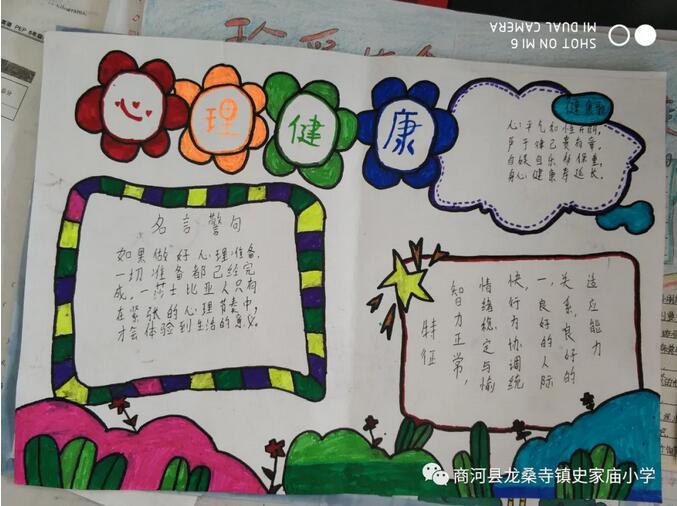 SHOT ON MI 6
MI DUAL CAMERA
心理健康
名言警句
如果做好心理准备,
一切准备都已经完
成。一莎士比亚人只有
在紧张的心理节奏中,
才会体验到生活的意义。
心平气和性开朗,
严于律己
自娱自乐
身心健康寿延长。
特征
智力正常,
情绪稳定与愉
快,行为协调统
一,良好的人际
关系,良好的
适应能力
商河县龙桑寺镇史家庙小学